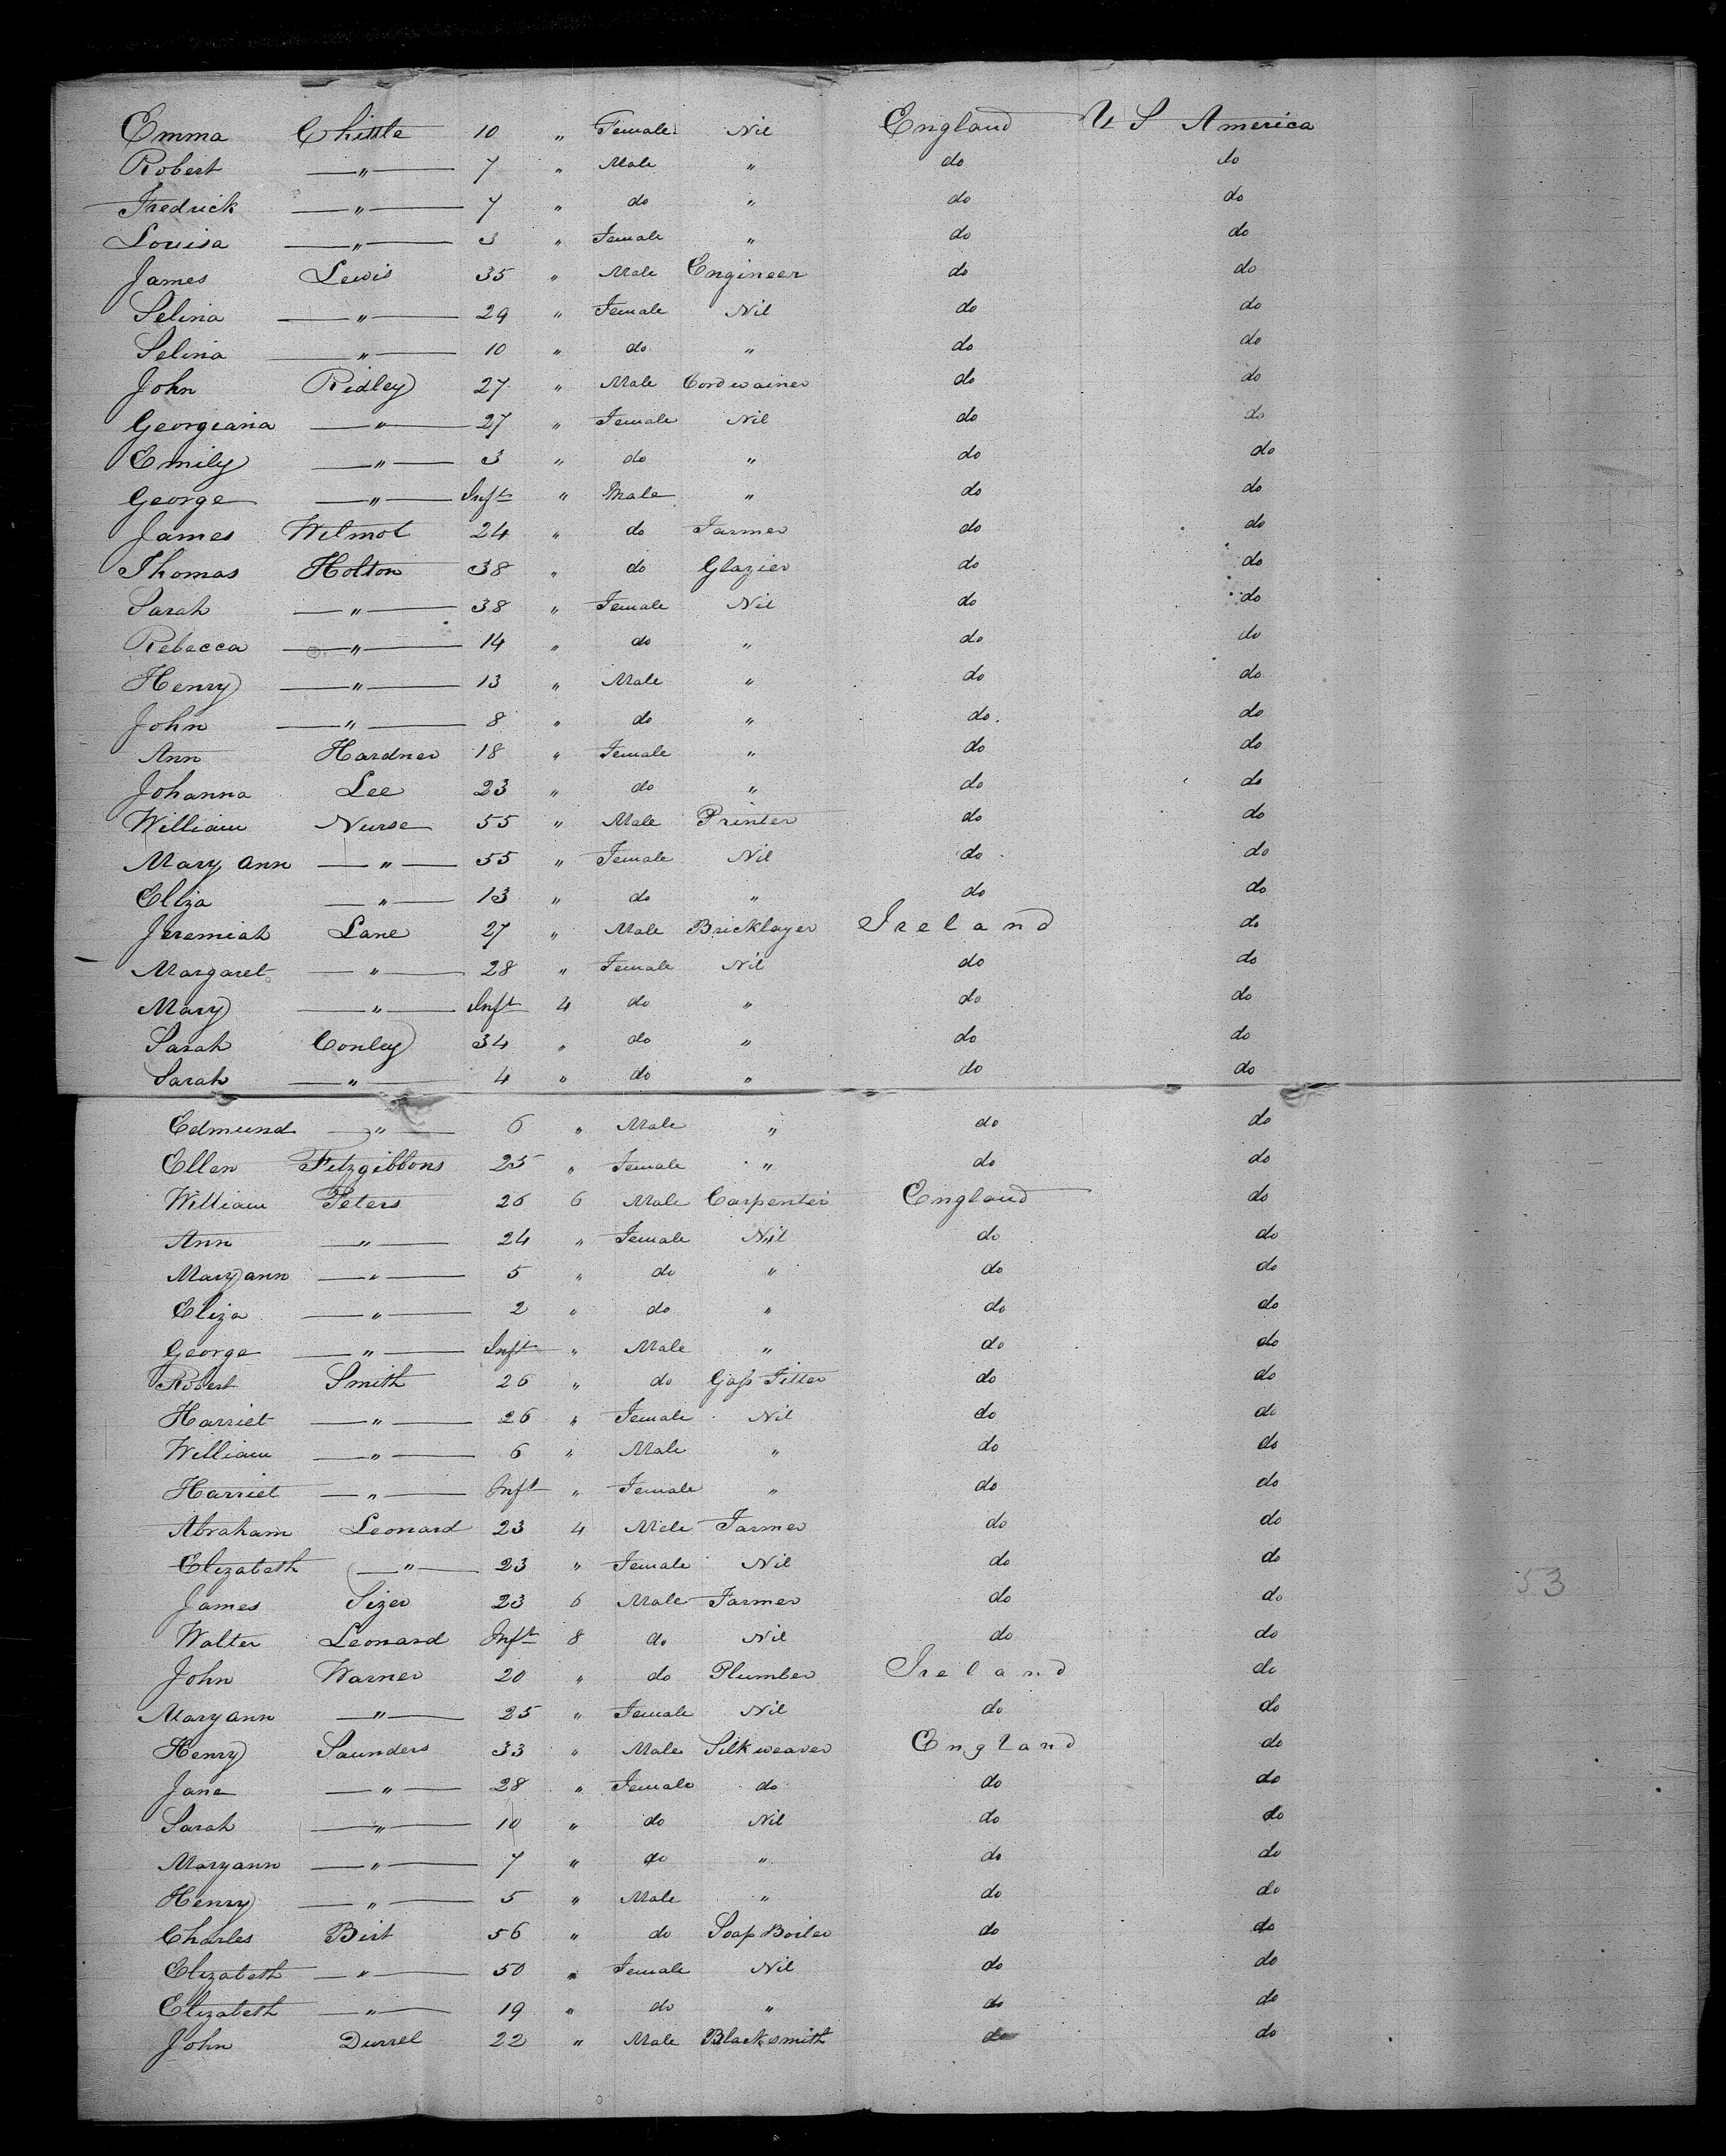 Emma Chittle 10 " Female Nil England U S America
Robert —"— 7 " Male " do do
Fredrick —"— 7 " do " do do
Louisa —"— 3 " Female " do do
James Lewis 35 " Male Engineer do do
Selina —"— 29 " Female Nil do do
Selina —"— 10 " do " do do
John Ridley 27 " Male Cordwainer do do
Georgiana —"— 27 " Female Nil do do
Emily —"— 3 " do " do do
George —"— Inft " Male " do do
James Wilmot 24 " do Farmer do do
Thomas Holton 38 " do Glazier do do
Sarah —"— 38 " Female Nil do do
Rebecca —"— 14 " do " do do
Henry —"— 13 " Male " do do
John —"— 8 " do " do. do
Ann Hardner 18 " Female " do do
Johanna Lee 23 " do " do do
William Nurse 55 " Male Printer do do
Mary Ann —"— 55 " Female Nil do do
Eliza —"— 13 " do " do do
Jeremiah Lane 27 " Male Bricklayer Ireland do
Margaret —"— 28 " Female Nil do do
Mary —"— Inft 4 do " do do
Sarah Conley 34 " do " do do
Sarah —"— 4 " do " do do
Edmund —"— 6 " Male " do do
Ellen Fitzgibbons 25 " Female " do do
William Peters 26 6 Male Carpenter England do
Ann —"— 24 " Female Nil do do
Maryann —"— 5 " do " do do
Eliza —"— 2 " do " do do
George —"— Inft " Male " do do
Robert Smith 26 " do Gass Fitter do do
Harriet —"— 26 " Female Nil do do
William —"— 6 " Male " do do
Harriet —"— Inft " Female " do do
Abraham Leonard 23 4 Male Farmer do do
Elizabeth —"— 23 " Female Nil do do
James Sizer 23 6 Male Farmer do do
53
Walter Leonard Inft 8 do Nil do do
John Warner 20 " do Plumber Ireland do
Maryann —"— 25 " Female Nil do do
Henry Saunders 33 " Male Silk weaver England do
Jane —"— 28 " Female do do do
Sarah —"— 10 " do Nil do do
Maryann —"— 7 " do " do do
Henry —"— 5 " Male " do do
Charles Birt 56 " do Soap Boiler do do
Elizabeth —"— 50 " Female Nil do do
Elizabeth —"— 19 " do " do do
John Durrel 22 " Male Blacksmith do do